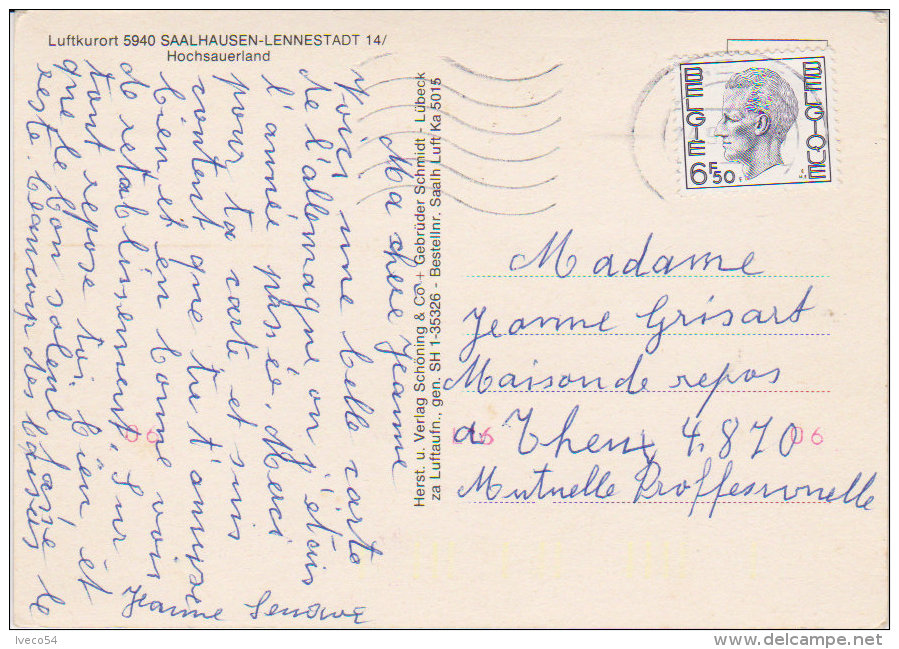 Luftkurort 5940 SAALHAUSEN-LENNESTADT 14/
Hochsauerland
Ma chere Jeanne
Voici une belle carte
de l'allemagne, ou j'étais
l'année passée. Merci
pour ta carte, et suis
content que tu t'amuse
bien et en bonne voie
de retablissement. Sur
tout repose toi bien et
que le bon soleil fasse le
reste. beaucoup des baisers
Jeanne
Herst. u. Verlag Schöning & Co + Gebrüder Schmidt - Lübeck
za Luftaufn., gen. SH 1-35326 - Bestellnr. Saalh Luft Ka 5015
BELGIE
BELGIQUE
6F50
Madame
Jeanne Grisart
Maison de repos
a Theux 4870
Mutuelle Proffessionelle
06
06
06
Iveco54
www.delcampe.net